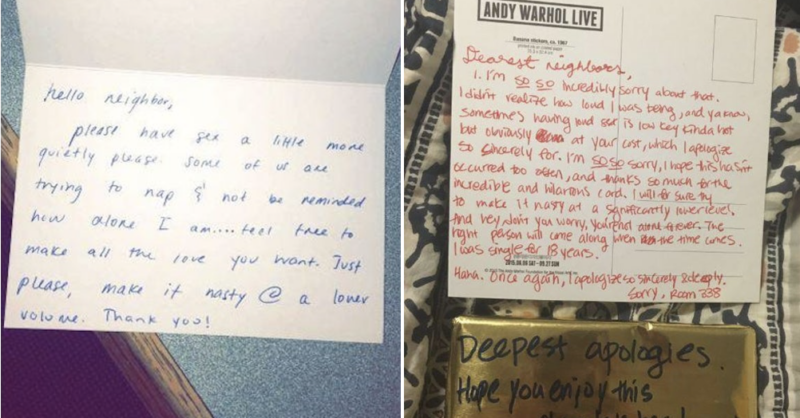 hello neighbor,
please have sex a little more
quietly please. some of us are
trying to nap & not be reminded
how alone I am....feel free to
make all the love you want. Just
please, make it nasty @ a lower
volume. Thank you!
ANDY WARHOL LIVE
Dearest neighbors,
1. I'm so so incredibly sorry about that.
I didn't realize how loud I was being, and ya know,
sometimes having loud sex is low key kinda hot
but obviously at your cost, which I apologize
so sincerely for. I'm so so sorry, I hope this hasn't
occurred too often, and thanks so much for the
incredible and hilarious card. I will for sure try
to make it nasty at a significantly lower level.
And hey, don't you worry, you end alone forever. The
right person will come along when the time comes.
I was single for 18 years.
Haha. Once again, I apologize so sincerely & deeply.
Sorry, Room 338
Deepest apologies.
Hope you enjoy this